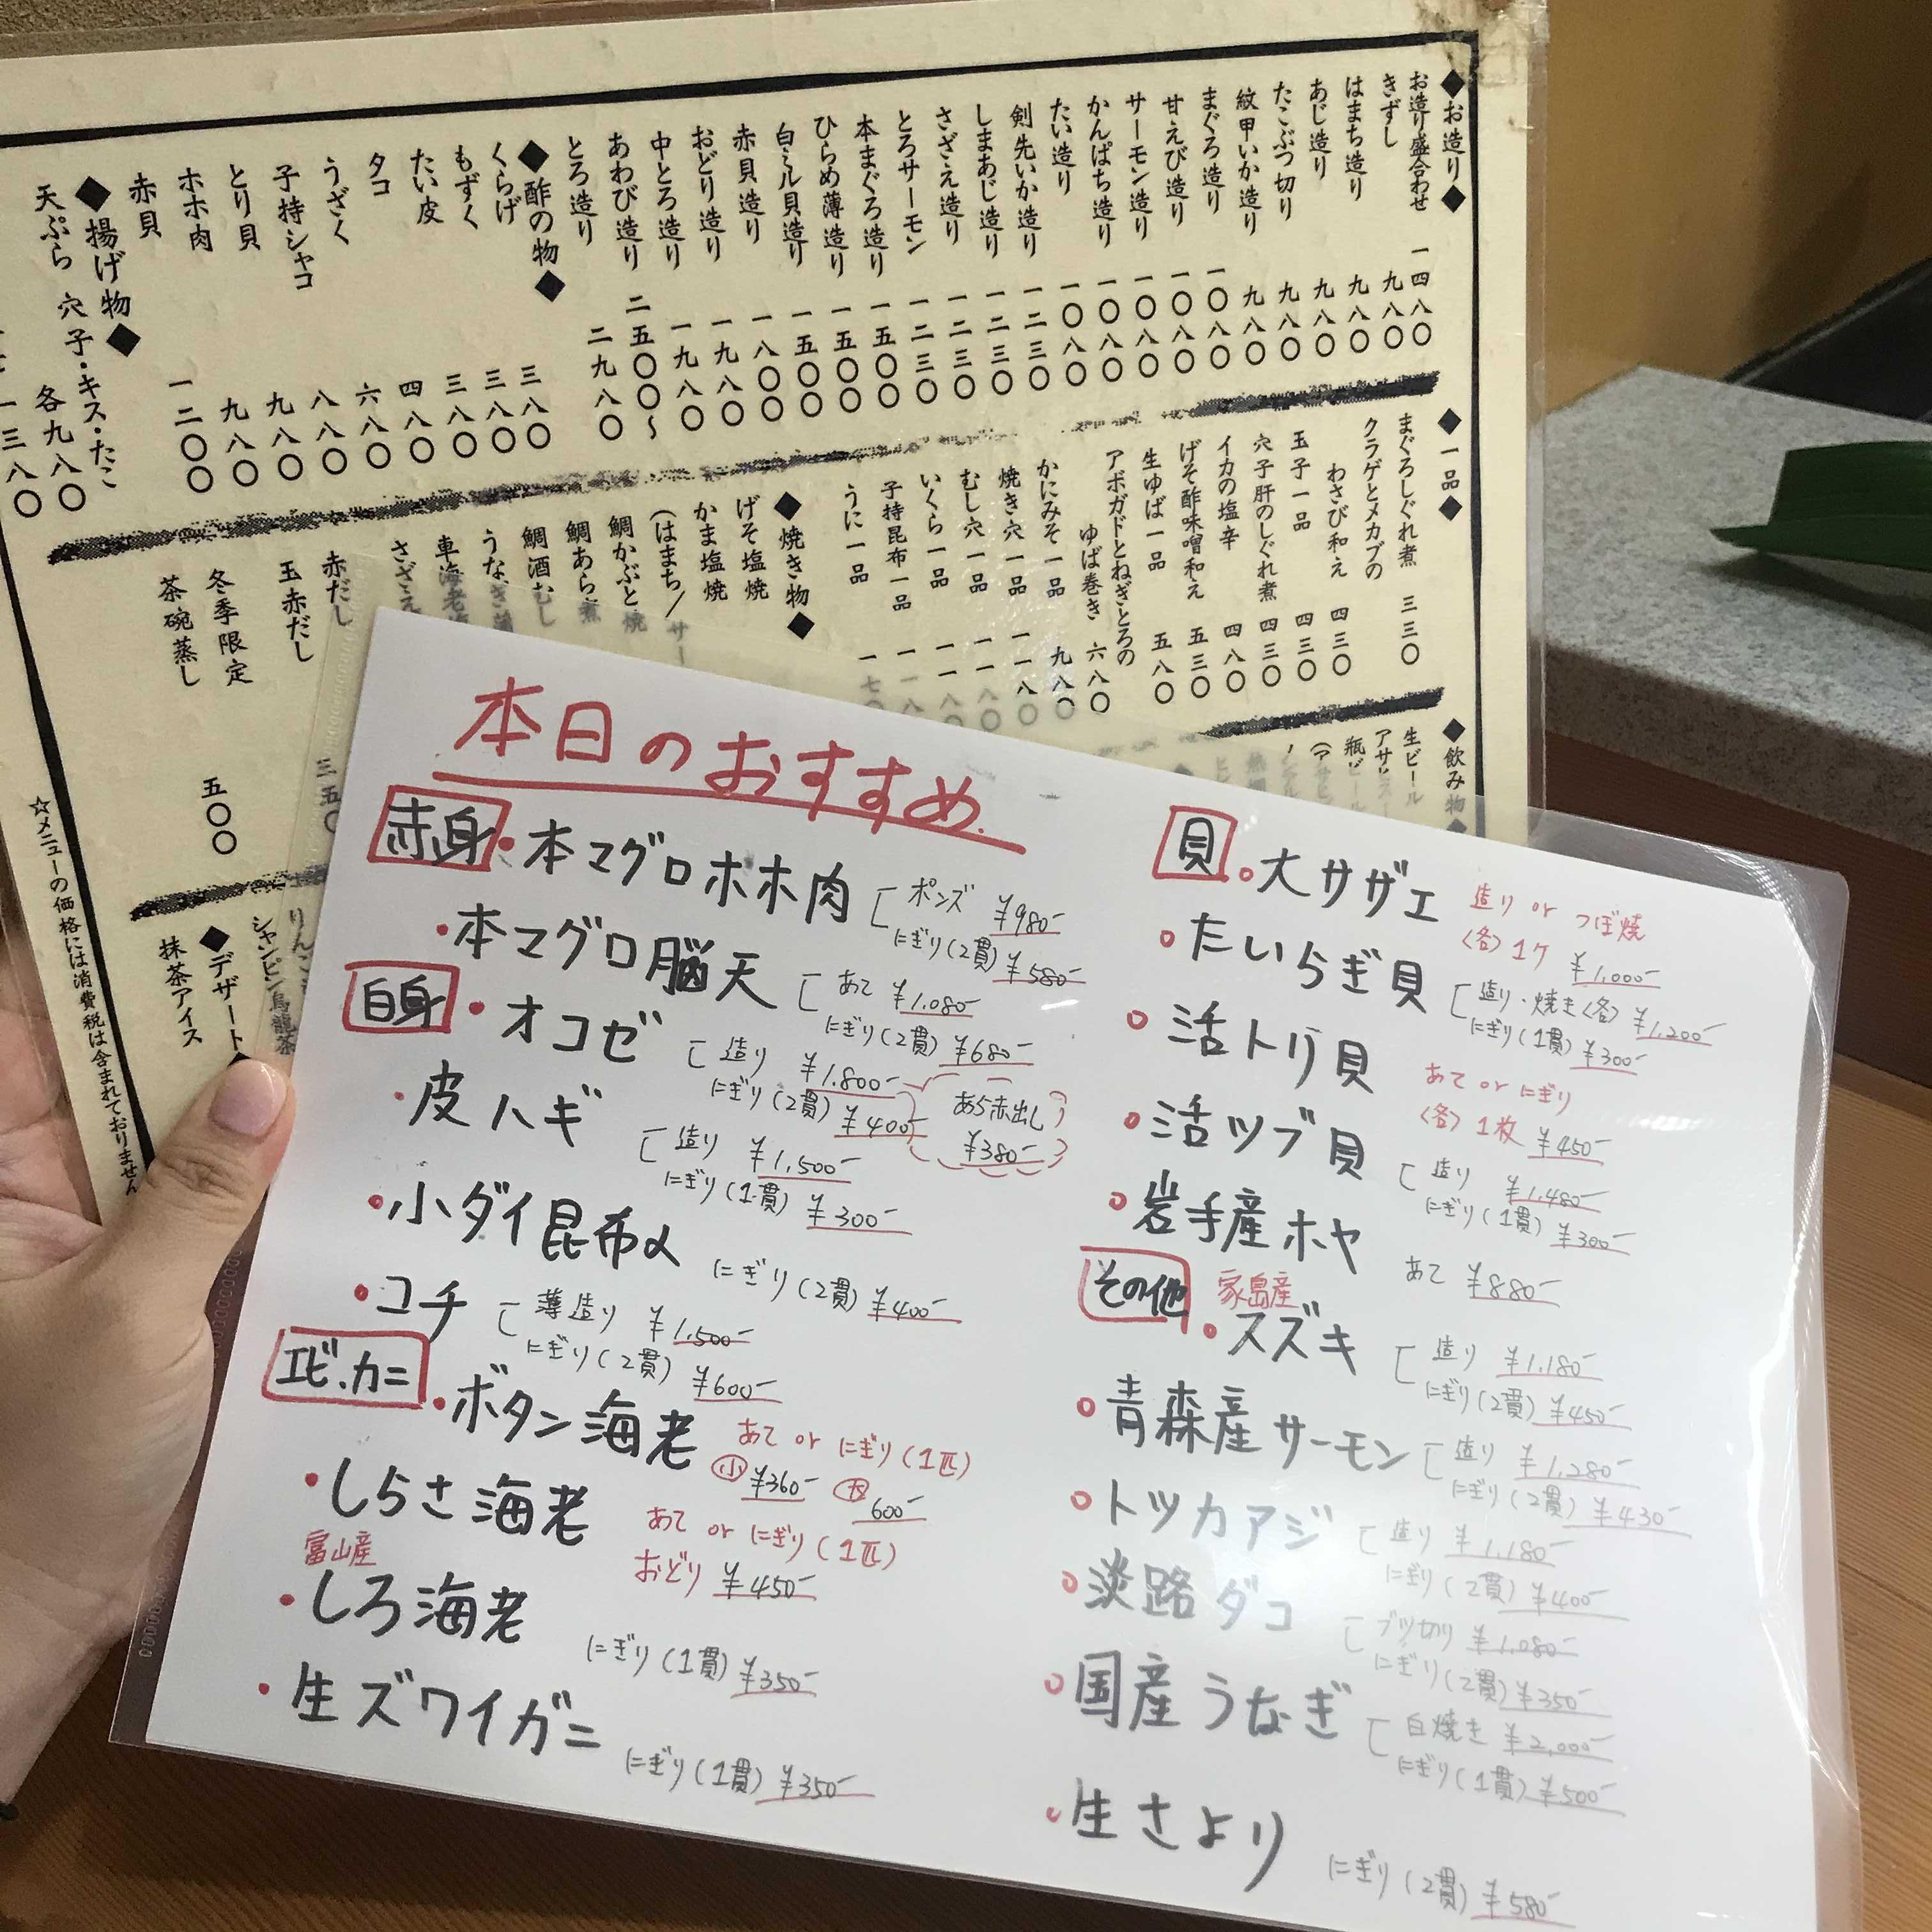 本日のおすすめ
赤身
・本マグロホホ肉
ポンズ ¥980-
にぎり(2貫) ¥580-
・本マグロ脳天
あて ¥1.080-
にぎり(2貫) ¥680-
白身
・オコゼ
造り ¥1.800-
にぎり(2貫) ¥400-
あら赤出し
¥380-
・皮ハギ
造り ¥1,500-
にぎり(1貫) ¥300-
・小ダイ昆布〆
にぎり(2貫) ¥400-
・コチ
薄造り ¥1.500-
にぎり(2貫) ¥600-
エビ.カニ
・ボタン海老
あて or にぎり(1匹)
小 ¥360- 大 600-
・しらさ海老
あて or にぎり(1匹)
おどり ¥450-
富山産
・しろ海老
にぎり(1貫) ¥350-
・生ズワイガニ
にぎり(1貫) ¥350-
貝
・大サザエ
造り or つぼ焼
〈各〉1ケ ¥1,000-
・たいらぎ貝
造り・焼き〈各〉 ¥1,200-
にぎり(1貫) ¥300-
・活トリ貝
あて or にぎり
〈各〉1枚 ¥450-
・活ツブ貝
造り ¥1,480-
にぎり(1貫) ¥300-
・岩手産ホヤ
あて ¥880-
その他
家島産
・スズキ
造り ¥1.180-
にぎり(2貫) ¥450-
・青森産サーモン
造り ¥1,280-
にぎり(2貫) ¥430-
・トツカアジ
造り ¥1,180-
にぎり(2貫) ¥400-
・淡路ダコ
ブツ切り ¥1.080-
にぎり(2貫) ¥350-
・国産うなぎ
白焼き ¥2,000-
にぎり(1貫) ¥500-
・生さより
にぎり(2貫) ¥580-
◆お造り◆
お造り盛合わせ 一四八〇
きずし 九八〇
はまち造り 九八〇
あじ造り 九八〇
たこぶつ切り 九八〇
紋甲いか造り 九八〇
まぐろ造り 一〇八〇
甘えび造り 一〇八〇
サーモン造り 一〇八〇
かんぱち造り 一〇八〇
たい造り 一〇八〇
剣先いか造り 一二三〇
しまあじ造り 一二三〇
さざえ造り 一二三〇
とろサーモン 一二三〇
本まぐろ造り 一五〇〇
ひらめ薄造り 一五〇〇
白ミル貝造り 一五〇〇
赤貝造り 一八〇〇
おどり造り 一九八〇
中とろ造り 一九八〇
あわび造り 二五〇〇〜
とろ造り 二九八〇
◆酢の物◆
くらげ 三八〇
もずく 三八〇
たい皮 三八〇
タコ 四八〇
うざく 六八〇
子持シャコ 八八〇
とり貝 九八〇
ホホ肉 九八〇
赤貝 一二〇〇
◆揚げ物◆
天ぷら 穴子・キス・たこ
各九八〇
一三八〇
◆一品◆
まぐろしぐれ煮 三三〇
クラゲとメカブの
わさび和え 四三〇
玉子一品 四三〇
穴子肝のしぐれ煮 四三〇
イカの塩辛 四八〇
げそ酢味噌和え 五三〇
生ゆば一品 五八〇
アボガドとねぎとろの
ゆば巻き 六八〇
かにみそ一品 九八〇
焼き穴一品
むし穴一品
いくら一品
子持昆布一品
うに一品
◆焼き物◆
げそ塩焼
かま塩焼
(はまち/サー
鯛かぶと焼
鯛あら煮
鯛酒むし
うなぎ
車海老
さざえ
赤だし 三五〇
玉赤だし
冬季限定
茶碗蒸し 五〇〇
◆飲み物◆
生ビール
アサヒ
瓶ビ
りんご
シャンピン烏龍茶
◆デザート◆
抹茶アイス
☆メニューの価格には消費税は含まれておりません